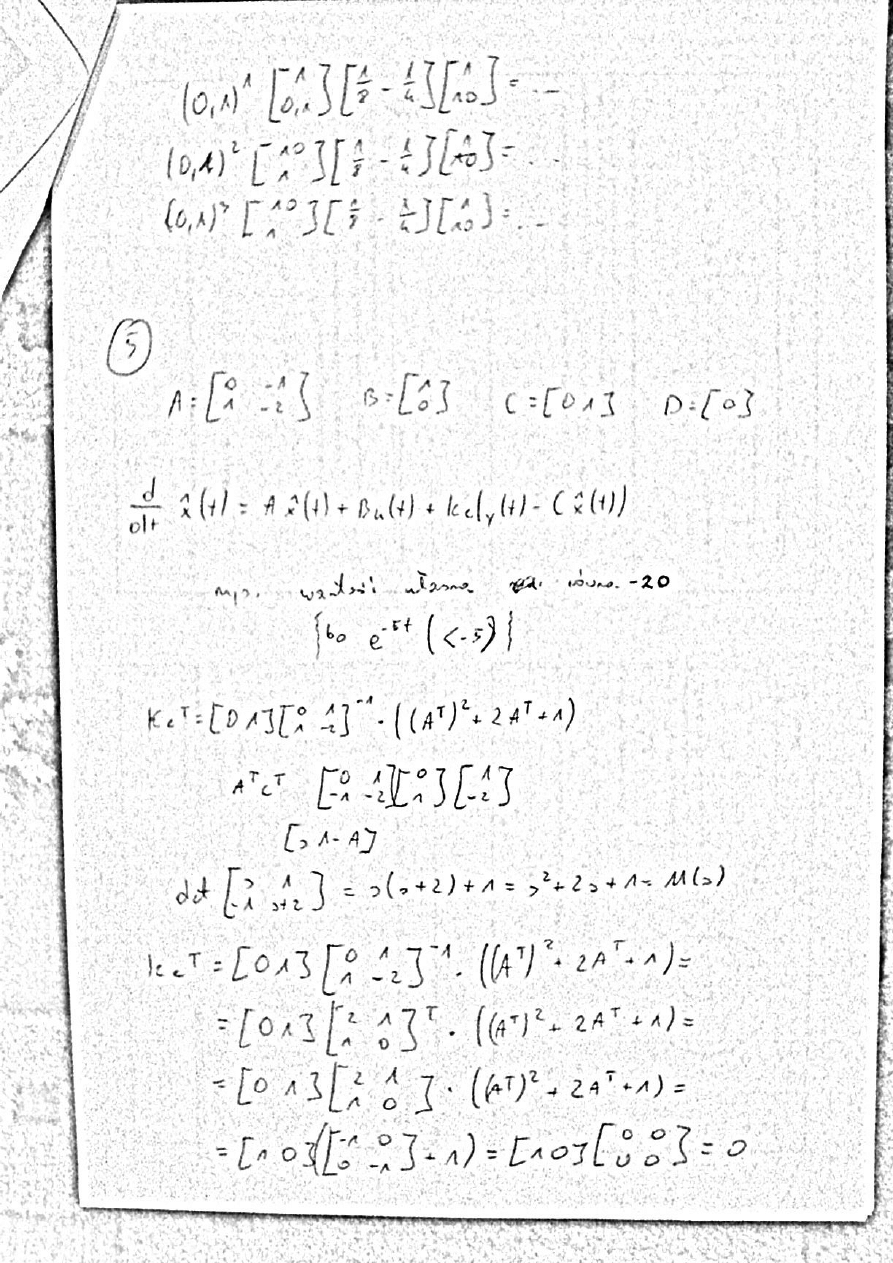 (0,1)¹ [1 0,1] [1/8 - 1/4] [1 10] = ...
(0,1)² [10 1] [1/8 - 1/4] [1 10] = ...
(0,1)³ [10 1] [1/8 - 1/4] [1 10] = ...
5
A = [0 -1 1 -2] B = [1 0] C = [0 1] D = [0]
d/dt x̂(t) = A x̂(t) + Bu(t) + Ke(y(t) - C x̂(t))
np. wartość własna równa -20
{bo e^-5t (<-5)}
Ke^T = [0 1] [0 1 1 -2]^-1 · ((A^T)² + 2A^T + 1)
A^T C^T [0 1 -1 -2] [0 1] [1 -2]
[s1 - A]
det [s 1 -1 s+2] = s(s+2) + 1 = s² + 2s + 1 = M(s)
Ke^T = [0 1] [0 1 1 -2]^-1 · ((A^T)² + 2A^T + 1) =
= [0 1] [2 1 1 0]^T · ((A^T)² + 2A^T + 1) =
= [0 1] [2 1 1 0] · ((A^T)² + 2A^T + 1) =
= [1 0] ([-1 0 0 -1] + 1) = [1 0] [0 0 0 0] = 0